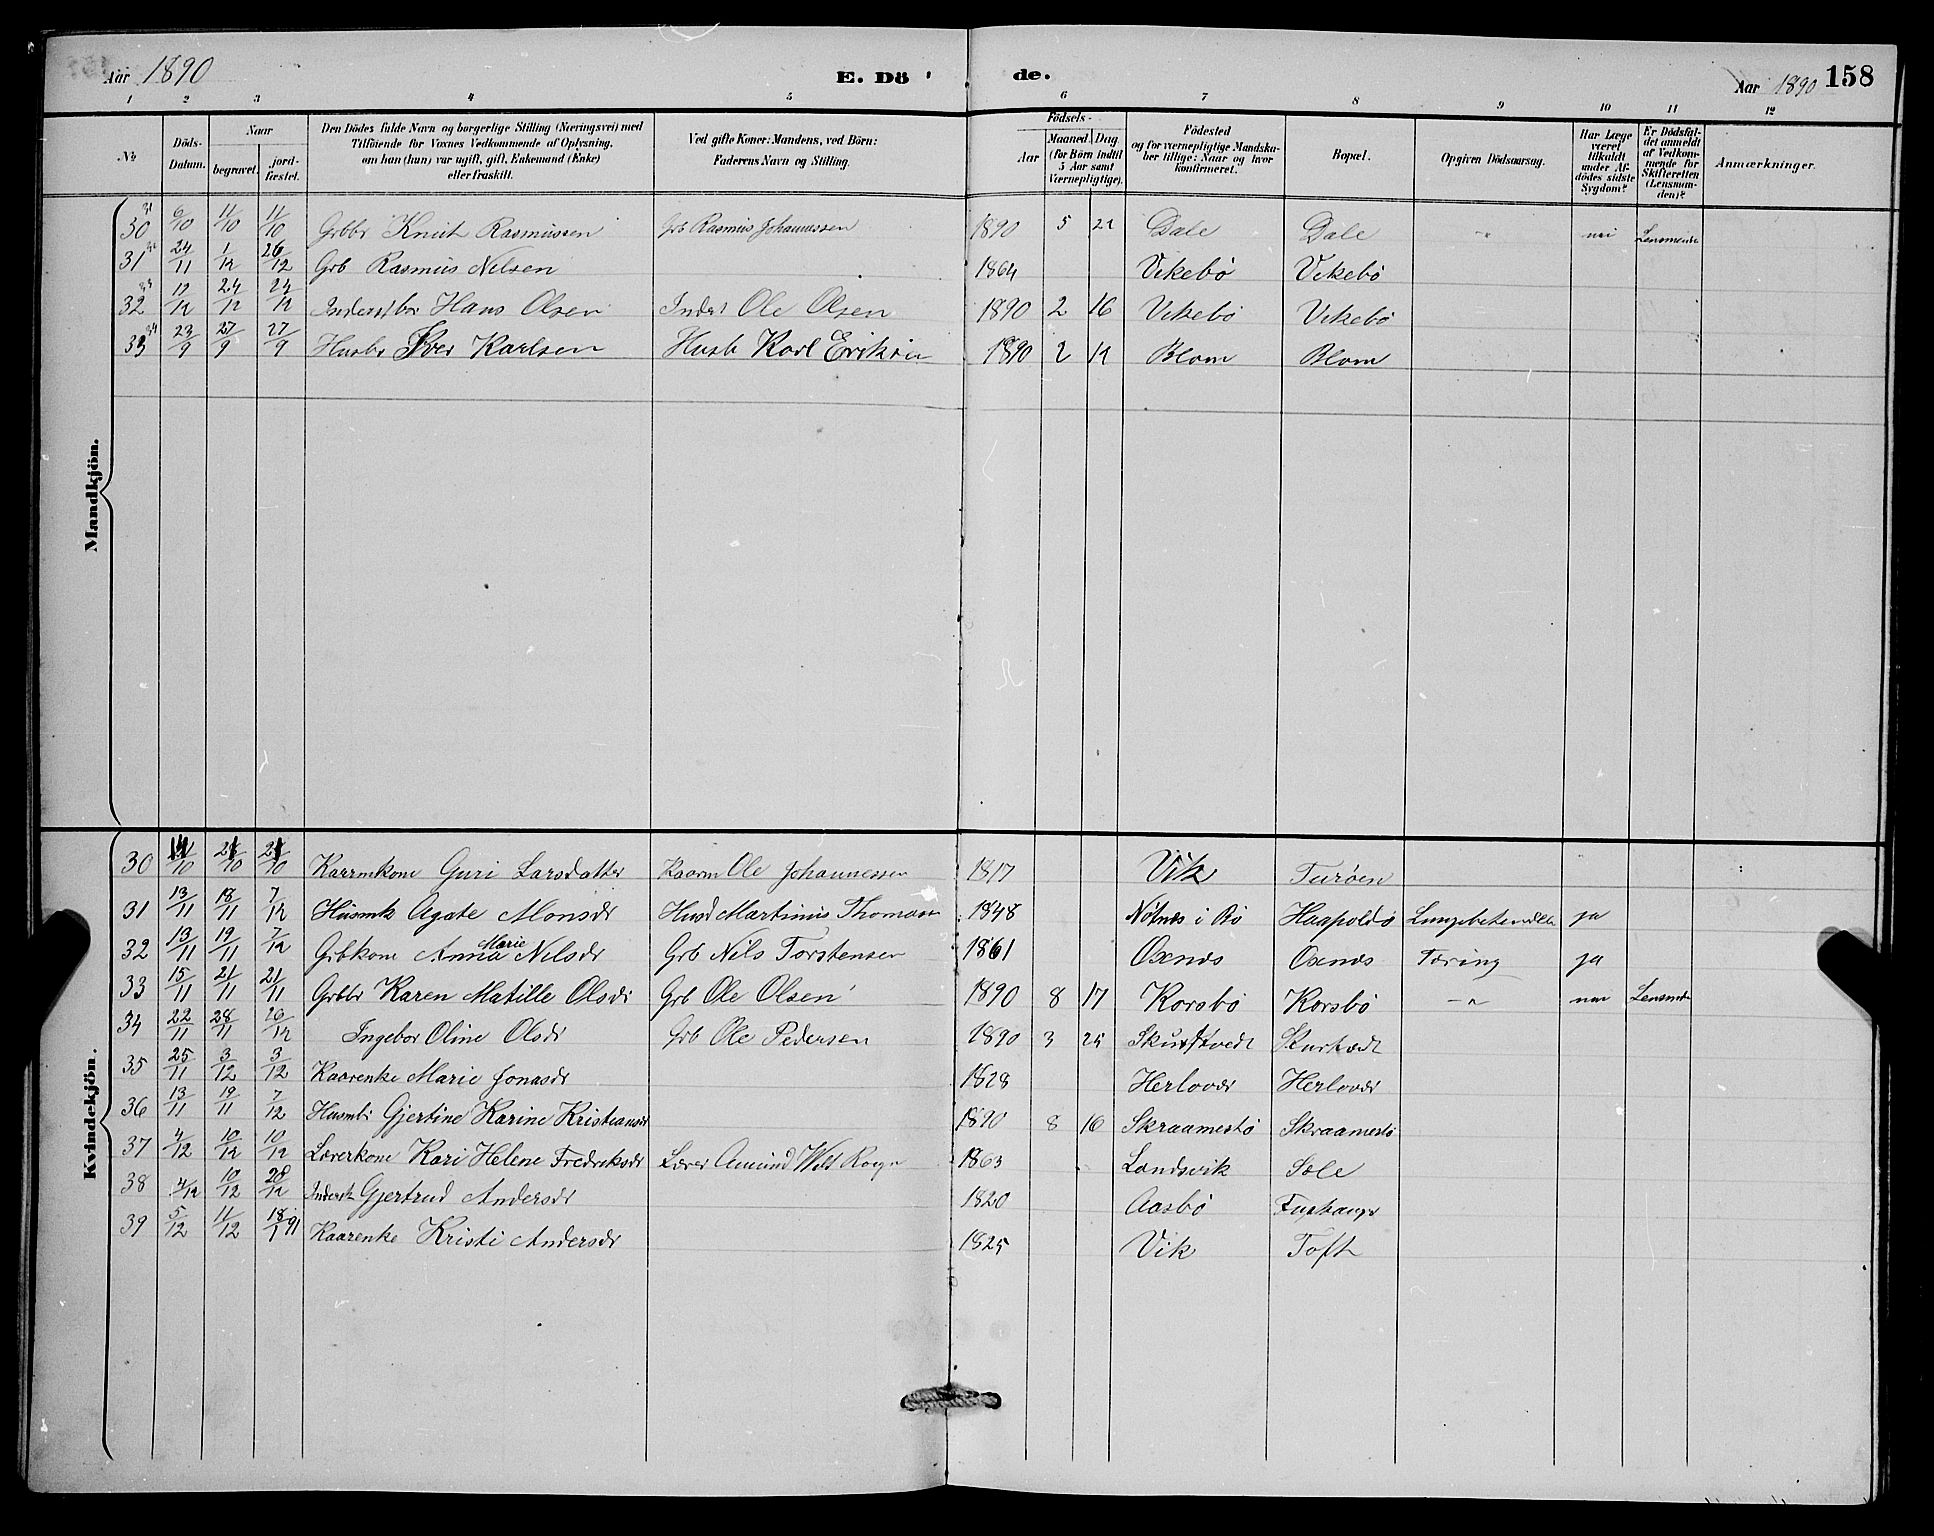 Aar 1890 E. Dö de. Aar 1890 158
1 2 3 4 5 6 7 8 9 10 11 12
No. Döds-Datum. Naar begravet. jordfæstet. Den Dödes fulde Navn og borgerlige Stilling (Næringsvei) med Tilföiende for Voxnes Vedkommende af Oplysning, om han (hun) var ugift, gift, Enkemand (Enke) eller fraskilt. Ved gifte Koner: Mandens, ved Börn: Faderens Navn og Stilling. Födsels- Aar Maaned. Dag (for Börn indtil 5 Aar samt Værnepligtige). Födested og for værnepligtige Mandskaber tillige: Naar og hvor konfirmeret. Bopæl. Opgiven Dödsaarsag. Har Læge været tilkaldt under Afdödes sidste Sygdom? Er Dödsfaldet anmeldt af Vedkommende for Skifteretten (Lensmanden)? Anmærkninger.
Mandkjön.
30 31 6/10 11/10 11/10 Grbbr Knut Rasmussen Grb Rasmus Johannessen 1890 5 21 Dale Dale " nei
31 24/11 1/12 26/12 Grb Rasmus Nilsen 1864 Vikebö Vikebö
32 33 12/12 24/12 24/12 Hans Olsen Inders Ole Olsen 1890 2 16 Vikebö Vikebö
33 34 23/9 27/9 27/9 Husbr Iver Karlsen Husb Karl Eriksen 1890 2 12 Blom Blom
Kvindekjön.
30 Kaarmkone Guri Larsdatter Kaarm Ole Johannessen 1817 Vik Turöen
31 13/11 18/11 7/12 Husmk Agate Monsdr Martinus Thomas 1848 Nötnes i Bö ja
32 13/11 19/11 7/12 Grbkone Anna Marie Nilsdr Grb Nils Torstensen 1861 Oxnes Oxnes Tæring ja
33 15/11 21/11 21/11 Grbbr Karen Matille Olsdr Grb Ole Olsen 1890 8 17 Korsbö Korsbö - "
34 22/11 28/11 26/12 Ingebor Oline Olsdr Grb Ole Pedersen 1890 3 25
35 25/11 3/12 3/12 Kaarenke Marie Jonasdr 1828 Herlover Herlover
36 13/11 19/11 7/12 Gjertine Karine Kristiansdr 1890 8 16 Skraamestö Skraamestö
37 4/12 10/12 10/12 Lærerkone Kari Helene Fredriksdr Lærer Amund 1863 Landsvik Sele
38 4/12 10/12 28/12 Gjertrud Andersdr 1820 Aasbö
39 5/12 11/12 18/1 91 Kaarenke Kristi Andersdr 1825 Vik Toft